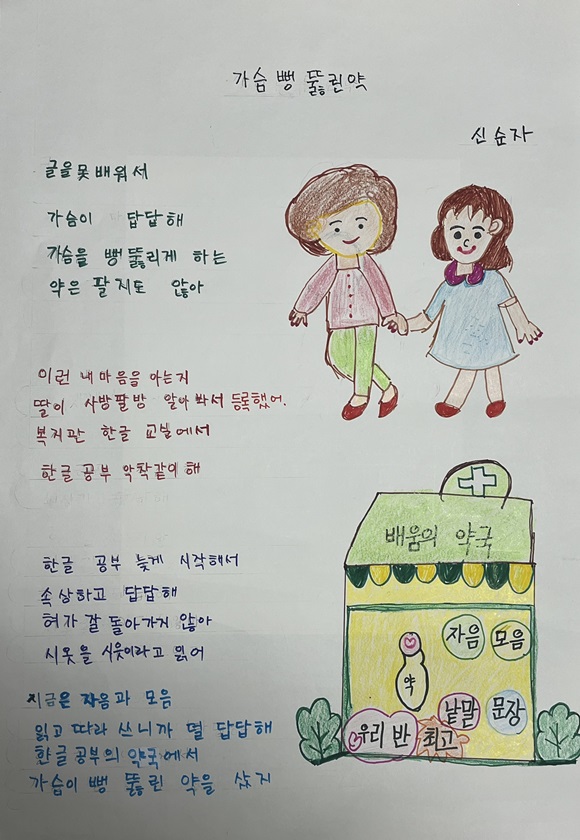 가슴 뻥 뚫린 약
신순자
글을 못 배워서
가슴이 답답해
가슴을 뻥 뚫리게 하는
약은 팔지도 않아
이런 내 마음을 아는지
딸이 사방팔방 알아 봐서 등록했어.
복지관 한글 교실에서
한글 공부 악착같이 해
한글 공부 늦게 시작해서
속상하고 답답해
혀가 잘 돌아가지 않아
시옷을 시읏이라고 읽어
지금은 자음과 모음
읽고 따라 쓰니까 덜 답답해
한글 공부의 약국에서
가슴이 뻥 뚫린 약을 샀지
배움의 약국
자음 모음
약
낱말 문장
우리 반 최고